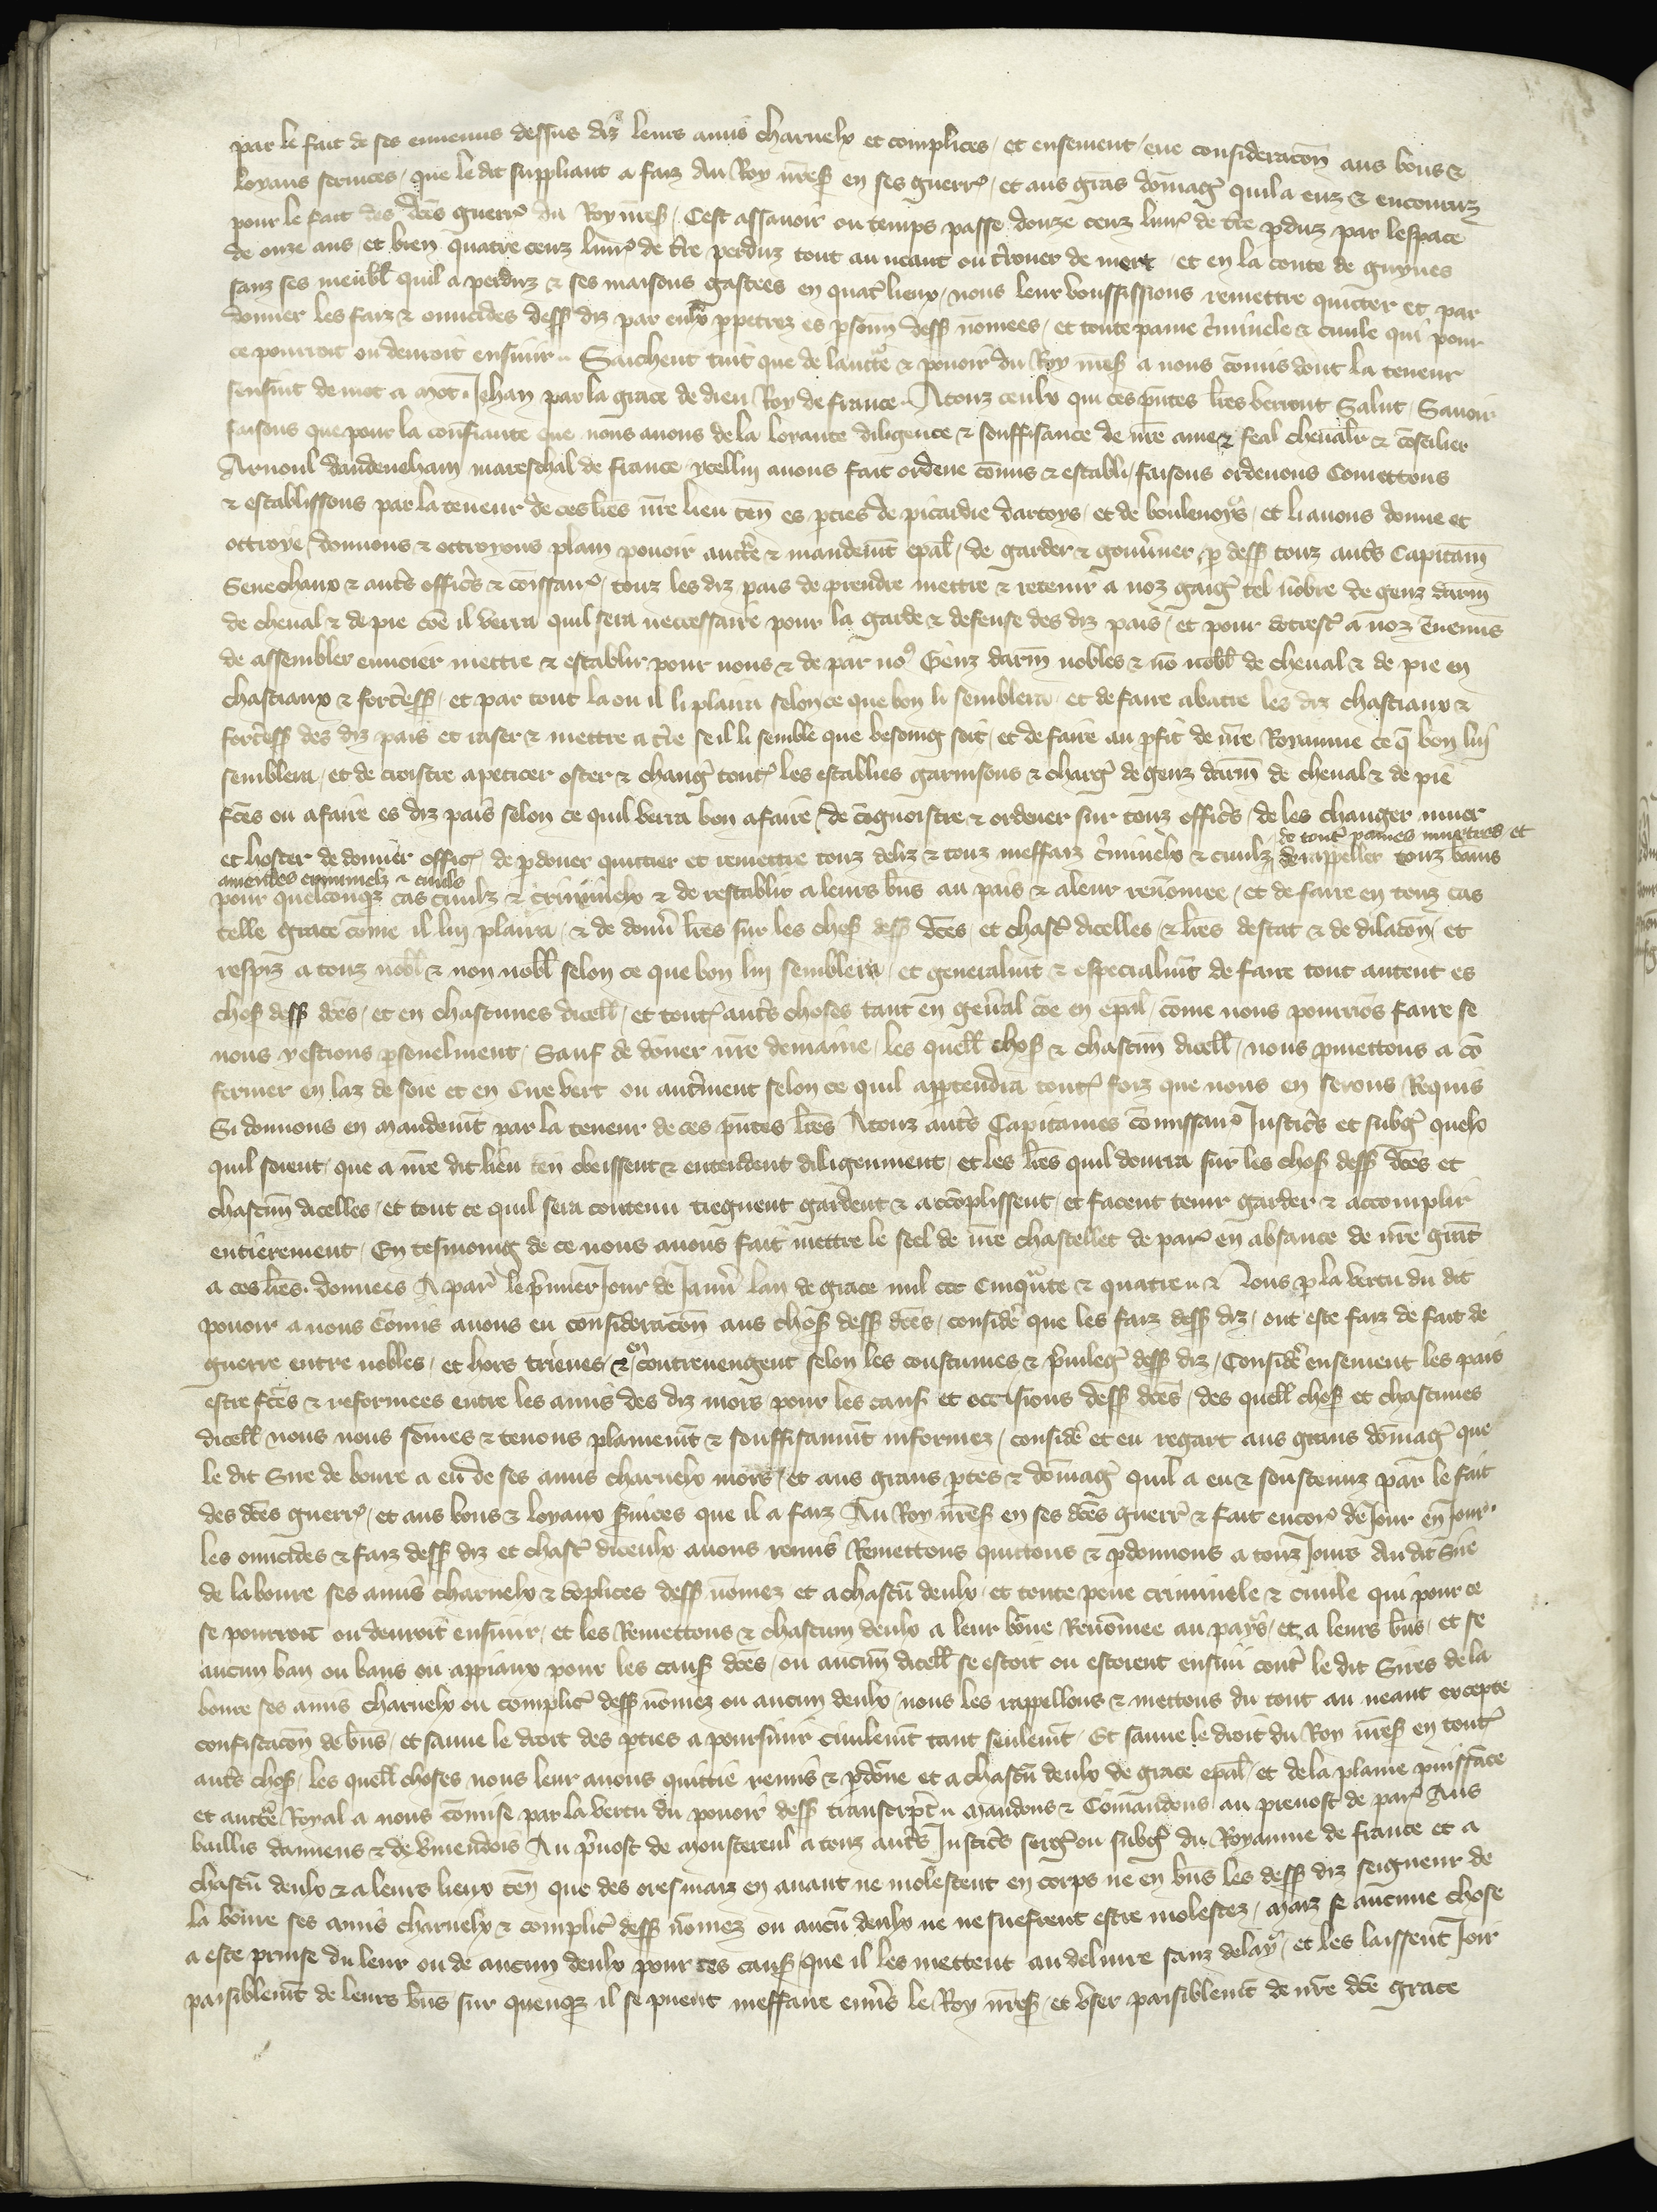 par le fait de ses ennemis dessus diz leurs amis charnelx et complices / et ensement / eue consideracõn aus bons &
loyaus seruices / que le dit suppliant a faiz au Roy nres̃ en ses guerr̃ / et aus gras dõmag̃ quil a euz & encouruz
pour le fait des dc̃es guerr̃ du Roy nres̃ / Cest assauoir ou temps passe douze cenz liur̃ de tr̃e p̃duz par lespace
de onze ans / et bien quatre cenz liur̃ de tr̃e perduz tout au neant ou tr̃ouer de mert / et en la conte de guynes
sanz ses meubl̃ quil a perduz & ses maisons gastees en quatr̃ lieux / nous leur voussissions remettre quicter et par
donner les faiz & omicides dess̃ diz par eulx p̃petrez es p̃sonñ dess̃ nõmees / et toute paine c̃minele & ciuile qui pour
ce pourroit ou deuroit ensuiir .. Saichent tuit que de laucte & pouoir du Roy nres̃ a nous cõmis dont la teneur
sensuit de mot a mot . Jehan par la grace de dieu Roy de france .. A touz ceulx qui ces p̃ntes lr̃es verront Salut / Sauoir
faisons que pour la confiance que nous auons de la loyaute diligence & souffisance de nr̃e ame & feal cheualr̃ & cõseilier
Arnoul dandeneham mareschal de france / ycellui auons fait ordene cõmis & establi / faisons ordenons Comettons
& establissons par la teneur de ces lr̃es nr̃e lieu teñ es p̃ties de picardie dartoys / et de boulenoys / et li auons donne et
ottroye / donnons & ottroyons plain pouoir auctr̃e & mandem̃t ep̃al / de garder & gouu̾ner p̃ dess̃ touz autr̃s Capitaiñ
Seneschaux & autr̃s offic̃s & cõissair̃ / touz les diz pais de prendre mettre & retenir a noz gaig̃ tel nõbre de genz darm̃
de cheual & de pie cõe il verra quil sera neccessaire pour la garde & defense des diz pais / et pour cõtrest̃ a noz ẽnemis
de assembler enuoier mettre & establir pour nous & de par noꝰ Genz darm̃ nobles & nõ nobl̃ de cheual & de pie en
chastiaux & fortr̃ess̃ / et par tout la ou il li plaira selon ce que bon li semblera / et de faire abatre les diz chastiaux &
fortr̃ess̃ des diz pais et raser & mettre a tr̃e se il li semble que besoing soit / et de faire au p̃fit de nr̃e Royaume ce q̃ bon lui
semblera / et de croistre apeticer oster & chang̃ tout̃ les establies garnisons & charg̃ de genz darm̃ de cheual & de pie
fc̃es ou a faire es diz pais selon ce quil verra bon a faire / de cõgnoistre & ordener sur touz offic̃s / de les changer muer
et hoster de donner offic̃ / de p̃doner quittier et remettre touz deliz & touz meffaiz c̃minelx & ciuilz de tout̃ paines murtres et de rappeller touz bans
amendes criminelz & ciuils
pour quelconq̃ cas ciuilz & criminelx & de restablir a leurs bñs au pais & a leur renõmee / et de faire en touz cas
telle grace cõme il lui plaira / & de donñ lr̃es sur les chos̃ dess̃ dc̃es / et chasc̃ dicelles / & lr̃es destat & de dilacõn / et
respiz a touz nobl̃ & non nobl̃ selon ce que bon lui semblera / et generalm̃t & especialm̃t de faire tout autent es
chos̃ dess̃ dc̃es / et en chascunes dicell̃ / et tout̃ autr̃s choses tant en geñal cõe en ep̃al / cõme nous pourriõs faire se
nous y estions p̃sonelment / Sauf de dõner nr̃e demaine / les quell̃ chos̃ & chascuñ dicell̃ / nous p̃mettons a cõ
fermer en laz de soie et en cire vert ou autr̃ment selon ce quil apptendra tout̃ foiz que nous en serons Requis
Si donnons en mandem̃t par la teneur de ces p̃ntes lr̃es A touz autr̃s Capitaines cõmissair̃ Justic̃s et subg̃ quelx
quil soient / que a nr̃e dit lieu teñ obeissent & entendent diligenment / et les lr̃es quil donrra sur les chos̃ dess̃ dc̃es et
chascuñ dicelles / et tout ce quil sera contenu tiegnent gardent & acõplissent / et facent tenir garder & accomplir
entierement / En tesmoing de ce nous auons fait mettre le seel de nr̃e chastellet de par̃ en absance de nr̃e grãt
a ces lr̃es . donnees A par̃ le p̃mier Jour de Janũ lan de grace mil ccc Cinqũte & quatre .. & Nous p̃ la vertu du dit
pouoir a nous cõmis auons eu consideracõn aus chos̃ dess̃ dc̃es / consider̃ que les faiz dess̃ diz / ont este faiz de fait de
guerre entre nobles / et hors trieues & en contreuengent selon les coustumes & p̃uileg̃ dess̃ diz / Consider̃ ensement les pais
estre fc̃es & reformees entre les amis des diz mors pour les caus̃ et occisions dess̃ dc̃es / des quell̃ chos̃ et chascunes
dicell̃ nous nous sõmes & tenons plainem̃t & souffisanm̃t informez / consider̃ et eu regart aus grans dõmag̃ que
le dit Sire de boure a eu de ses amis charnelx mors / et aus grans p̃tes & dõmag̃ quil a eu & soustenuz par le fait
des dc̃es guerr̃ / et aus bons & loyaux s̃uices que il a faiz Au Roy nres̃ en ses dc̃es guerr̃ & fait encor̃ de Jour en Jour ..
les omicides & faiz dess̃ diz et chasc̃ diceulx auons remis Remettons quittons & p̃donnons a touz Jours Au dit Sire
de la boure ses amis charnelx & cõplices dess̃ nõmez et a chascũ deulx / et toute peine criminele & ciuile qui pour ce
se pourroit ou deuroit ensuiir / et les Remettons & chascum deulx a leur bõne Renõmee au pays / et a leurs bñs / et se
aucun ban ou bans ou appiaux pour les caus̃ dc̃es / ou aucuñ dicell̃ se estoit ou estoient ensuii contr̃ le dit Sires de la
boure ses amis charnelx ou complic̃ dess̃ nõmez ou aucun deulx / nous les rappellons & mettons du tout au neant excepte
confiscacõn de bñs / et sauue le droit des p̃ties a poursuiir ciuilem̃t tant seulem̃t / Et sauue le droit du Roy nres̃ en tout̃
autr̃s chos̃ / les quell̃ choses nous leur auons quittie remis & p̃dõne et a chascũ deulx de grace ep̃al / et de la plaine puissãce
et auctr̃e Royal a nous cõmise par la vertu du pouoir dess̃ transcrp̃t .. Mandons & Cõmandons au preuost de par̃ Aus
baillis damiens & de vmendois Au p̃uost de monstereul a touz autr̃s Justic̃s serg̃ ou subg̃ du Royaume de france et a
chascũ deulx & a leurs lieux teñ que des oresmaiz en auant ne molestent en corps ne en bñs les dess̃ diz seigneur de
la boure ses amis charnelx & complic̃ dess̃ nõmez ou aucũ deulx ne ne suefrent estre molestez / maiz se aucune chose
a este prinse du leur ou de aucun deulx pour ces caus̃ / que il les mettent au deliure sanz delay / et les laissent Joir
paisiblem̃t de leurs bñs sur quenq̃ il se puent meffaire enũs le Roy nres̃ / et vser paisiblem̃t de nr̃e dc̃e grace